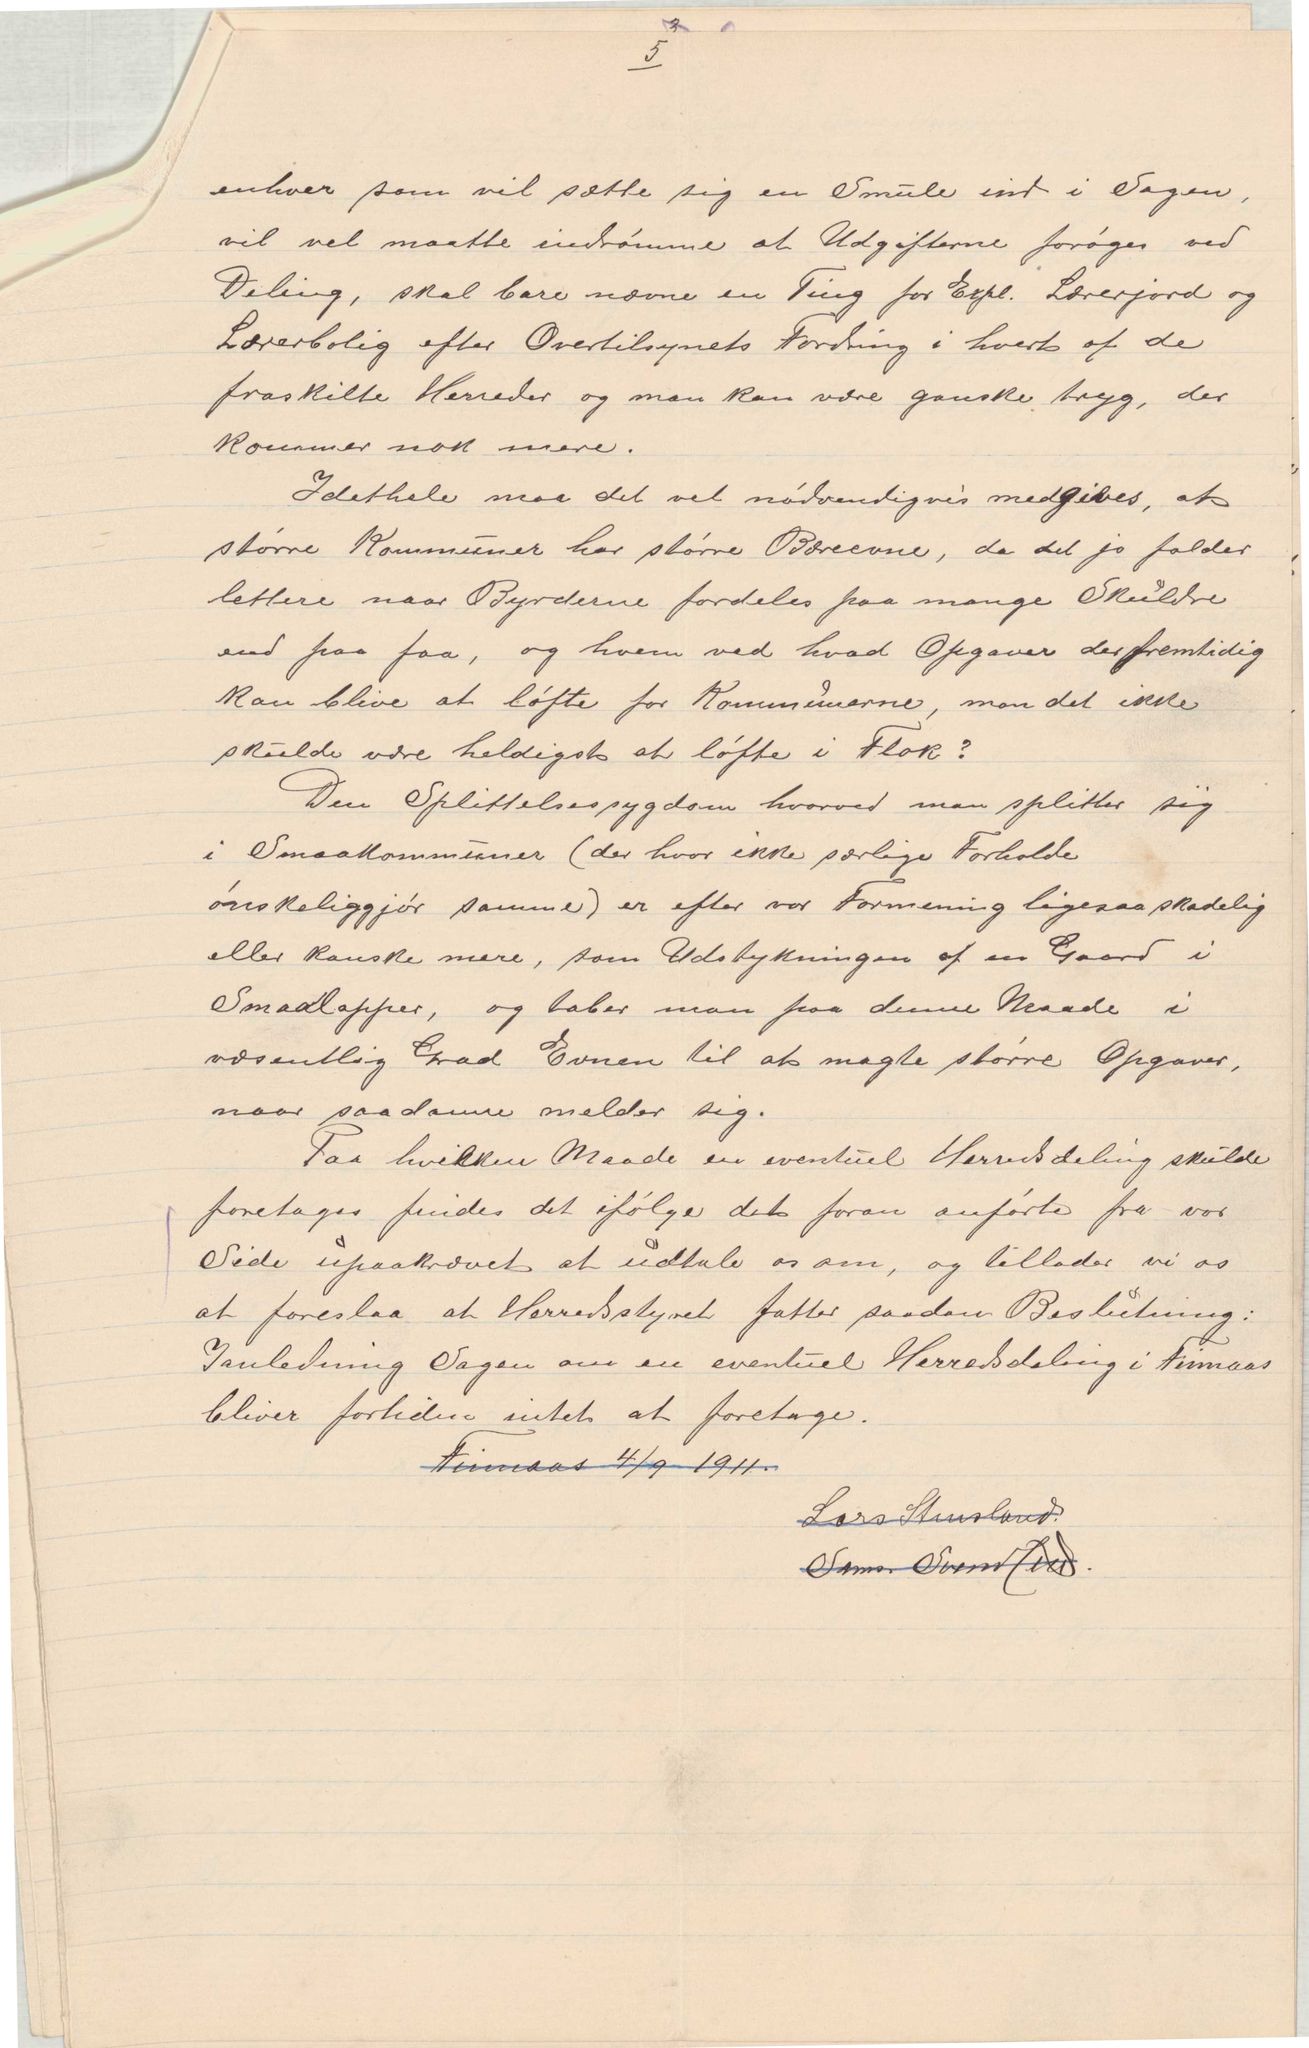 5
enhver som vil sætte sig en Smule ind i Sagen,
vil vel maatte indrømme at Udgifterne forøges ved
Deling, skal bare nævne en Ting for Expl. Lærerjord og
Lærerbolig efter Overtilsynets Fordring i hvert af de
fraskilte Herreder og man kan være ganske tryg, der
kommer nok mere.
Idethele maa det vel nødvendigvis medgives, at
større Kommuner har større Bæreevne, da det jo falder
lettere naar Byrderne fordeles paa mange Skuldre
end paa faa, og hvem ved hvad Opgaver der fremtidig
kan blive at løfte for Kommunerne, mon det ikke
skulde være heldigst at løfte i Flok?
Den Splittelsessygdom hvorved man splitter sig
i Smaakommuner (der hvor ikke særlige Forholde
ønskeliggjør samme) er efter vor Formening ligesaa skadelig
eller kanske mere, som Udstykningen af en Gaard i
Smaalapper, og taber man paa denne Maade i
væsentlig Grad Evnen til at magte større Opgaver,
naar saadanne melder sig.
Paa hvilken Maade en eventuel Herredsdeling skulde
foretages findes det ifølge det foran anførte fra vor
Side upaakrævet at udtale os om, og tillader vi os
at foreslaa at Herredsstyret fatter saadan Beslutning:
Ianledning Sagen om en eventuel Herredsdeling i Finnaas
bliver fortiden intet at foretage.
Finnaas 4/9 1911.
Lars